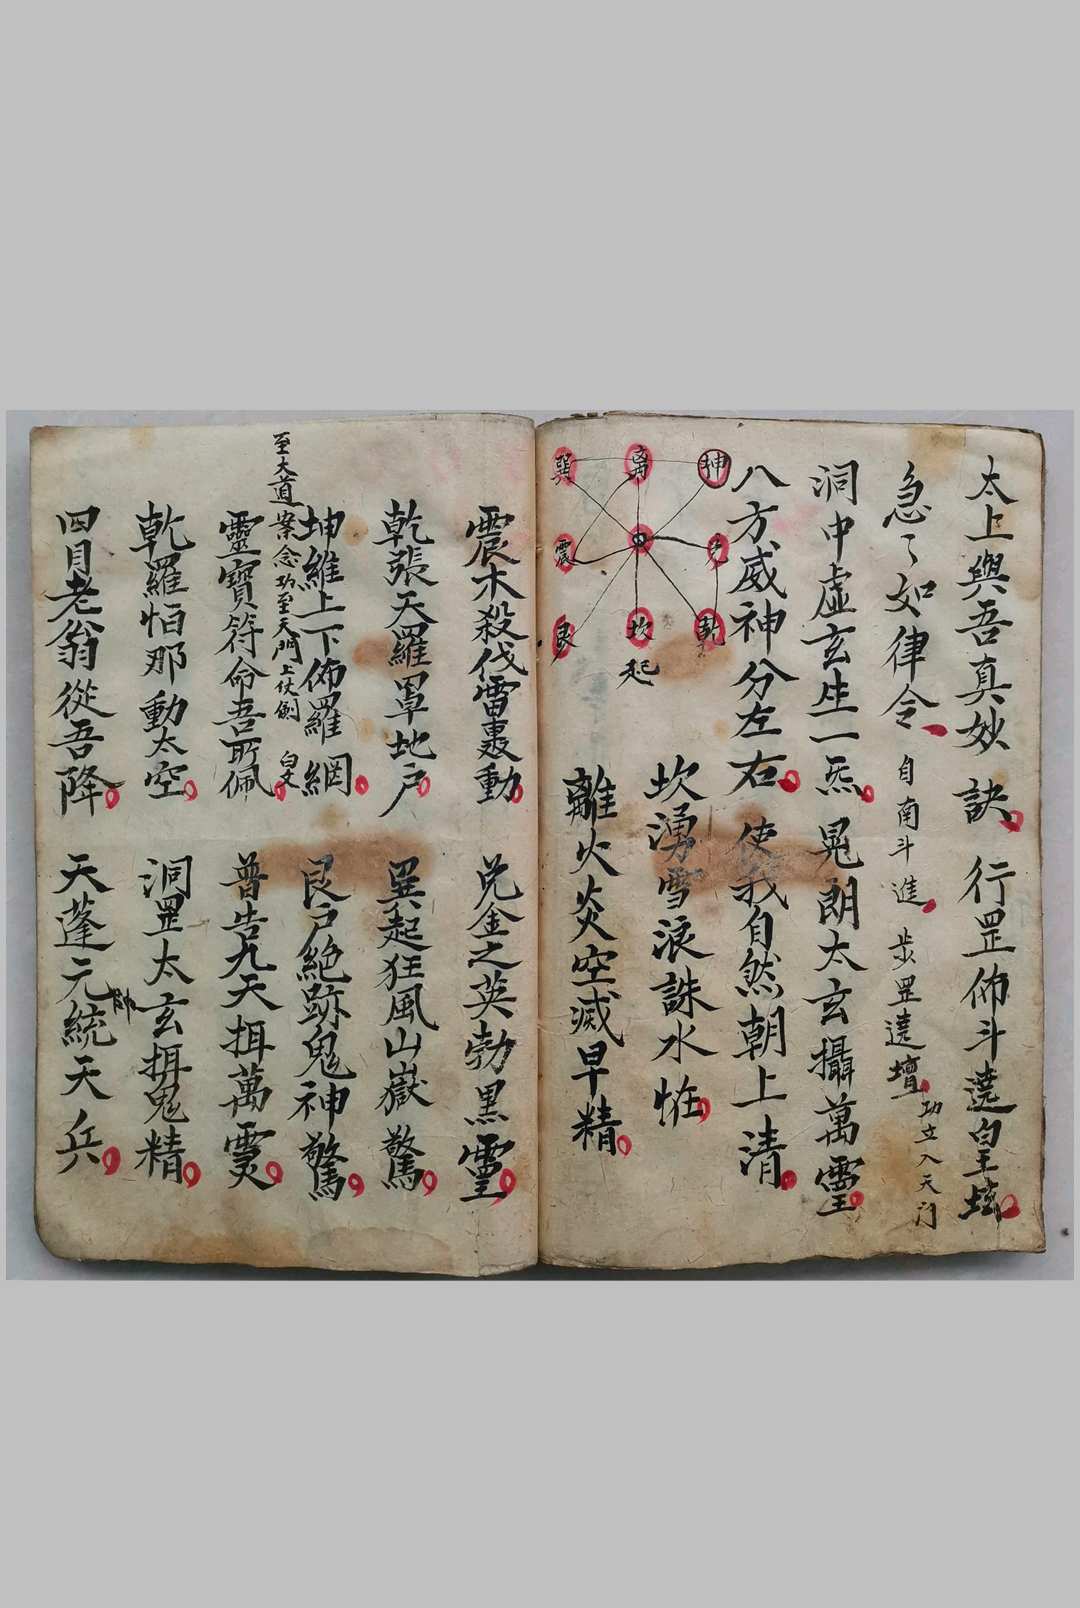 太上與吾真妙訣 行罡佈斗遶皇壇
急々如律令 自南斗進 步罡遶壇 功立入天门
洞中虛玄生一炁 晃朗太玄攝萬靈
八方威神分左右 使我自然朝上清
坤 離 巽
兑 中 震
乾 坎 艮
起
坎湧雪浪誅水恠
離火炎空滅旱精
震木殺伐雷轟動 兑金之英勃黑靈
乾張天羅罩地户 巽起狂風山嶽驚
坤維上下佈羅網 艮户絶跡鬼神驚
至大道案念功至天門上仗劍 白文
靈寶符命吾所佩 普告九天揖萬霛
乾羅怛那動太空 洞罡太玄揖鬼精
四目老翁從吾降 天蓬元帥統天兵